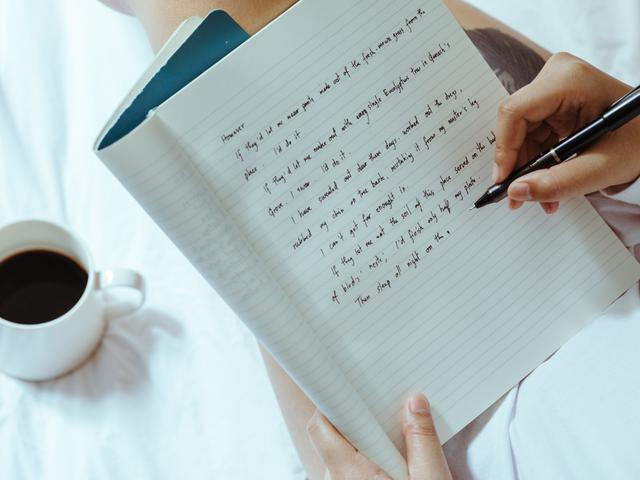 However
If they'd let me wear pants made out of the fresh-mown grass from the
place I'd do it
If they'd let me make out with every single Eucalyptus tree in Queen's
Grove, I swear I'd do it.
I have sweated out dew these days; worked out the dregs,
rubbed my chin on the bark, mistaking it from my master's leg
I can't get far enough in.
If they let me eat the soil of this place served on the bed
of birds' nests; I'd finish only half my plate,
Then sleep all night on the